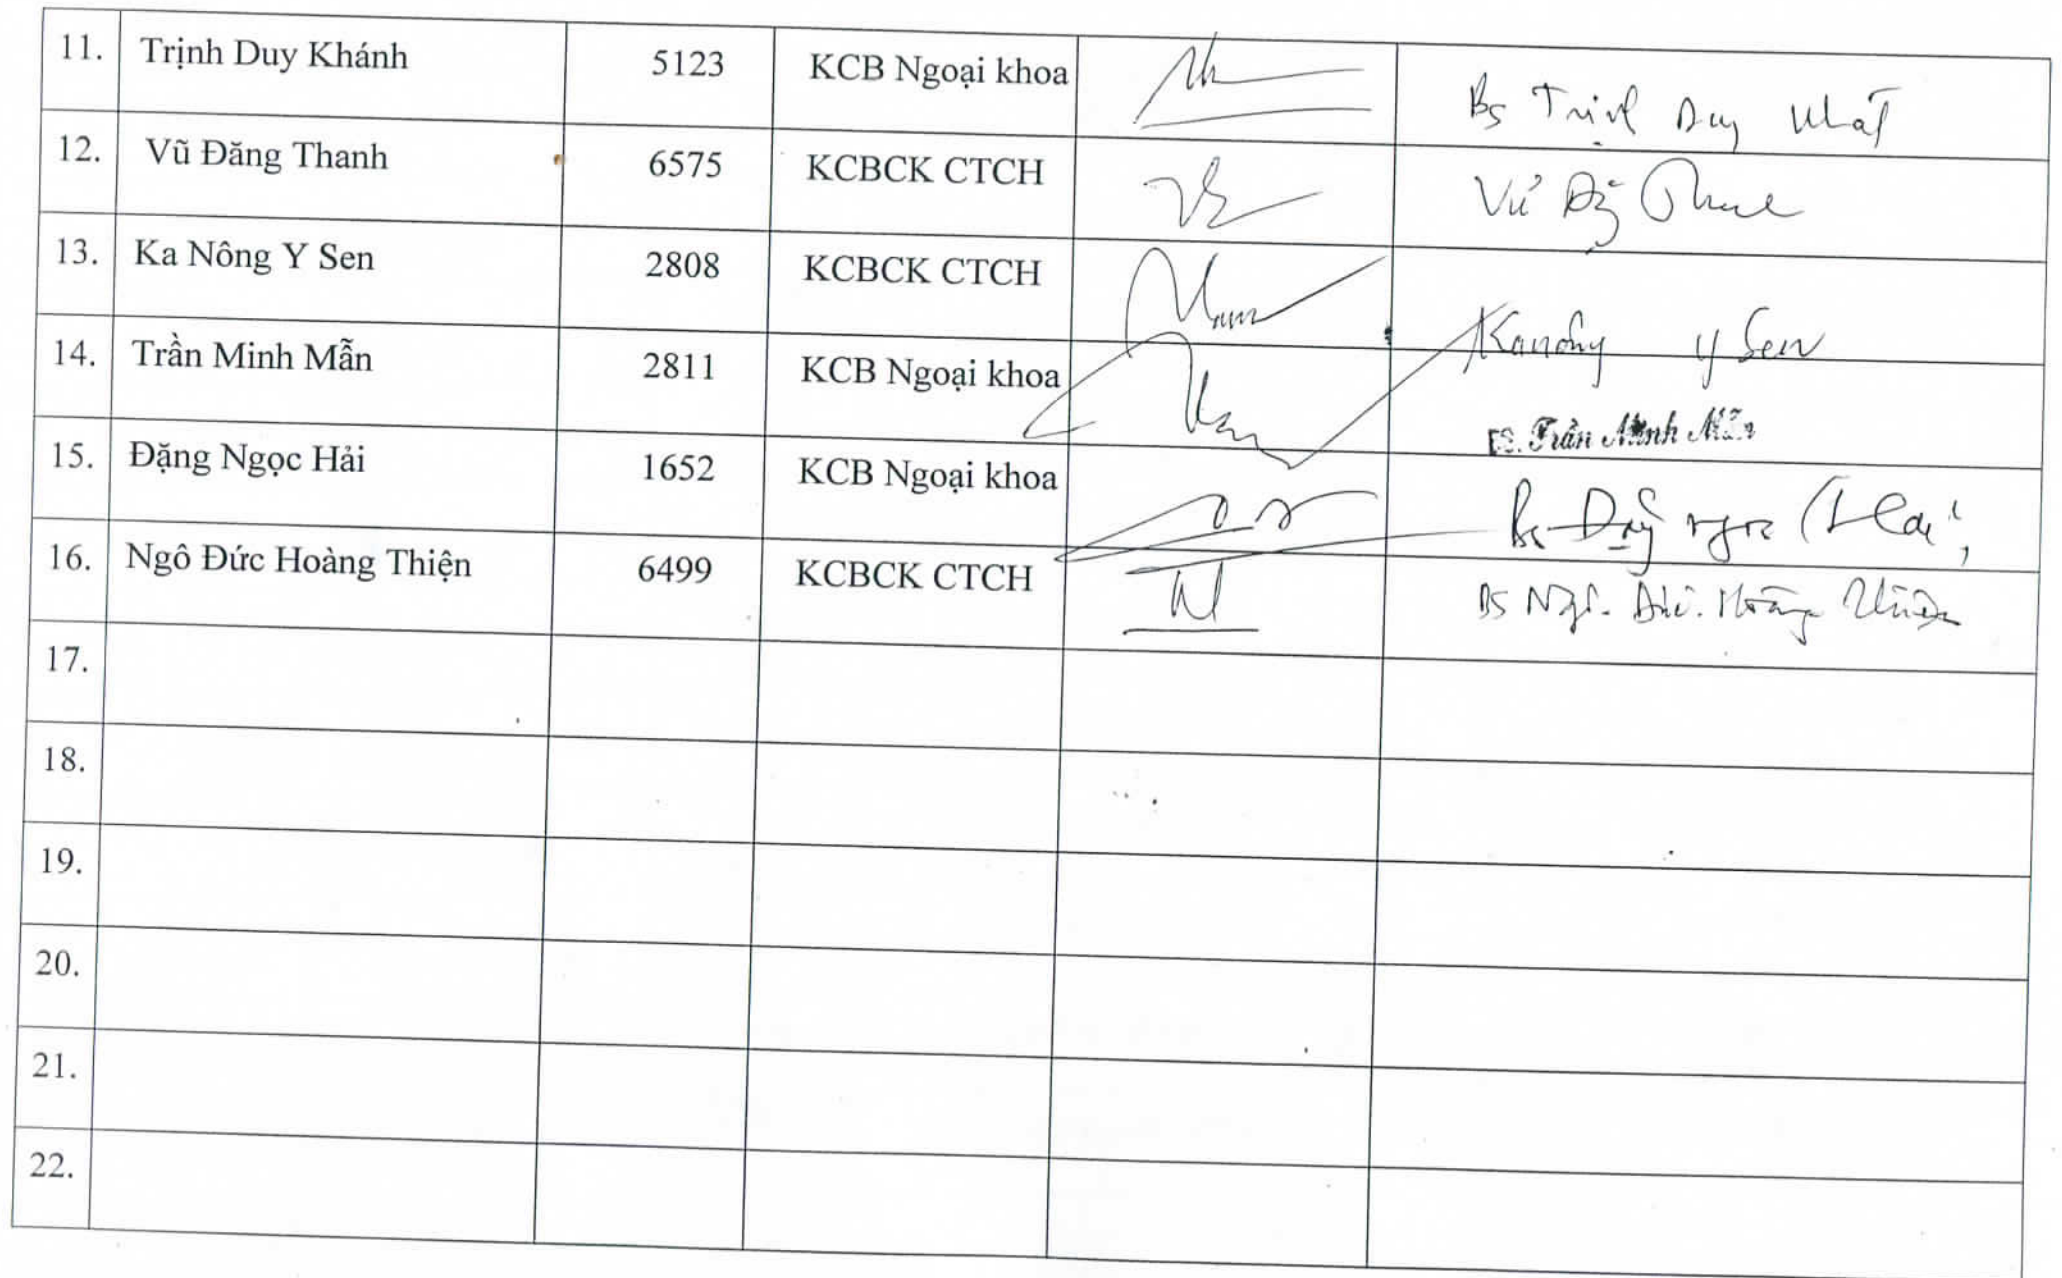 11. Trịnh Duy Khánh 5123 KCB Ngoại khoa Bs Trịnh Duy Nhất
12. Vũ Đăng Thanh 6575 KCBCK CTCH Vũ
13. Ka Nông Y Sen 2808 KCBCK CTCH Kanông Y Sen
14. Trần Minh Mẫn 2811 KCB Ngoại khoa BS. Trần Minh Mẫn
15. Đặng Ngọc Hải 1652 KCB Ngoại khoa Bs Đặng Ngọc Hải
16. Ngô Đức Hoàng Thiện 6499 KCBCK CTCH BS Ngô Đức Hoàng Thiện
17.
18.
19.
20.
21.
22.